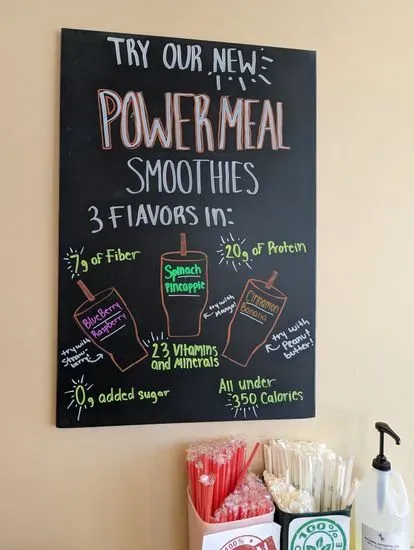 TRY OUR NEW
POWERMEAL
SMOOTHIES
3 FLAVORS IN:
7g of Fiber
20g of Protein
Spinach
Pineapple
try with
Mango!
BlueBerry
Raspberry
Cinnamon
Banana
try with
Straw
berry
try with
Peanut
butter!
23 Vitamins
and Minerals
0g added sugar
All under
350 Calories
100%
100%